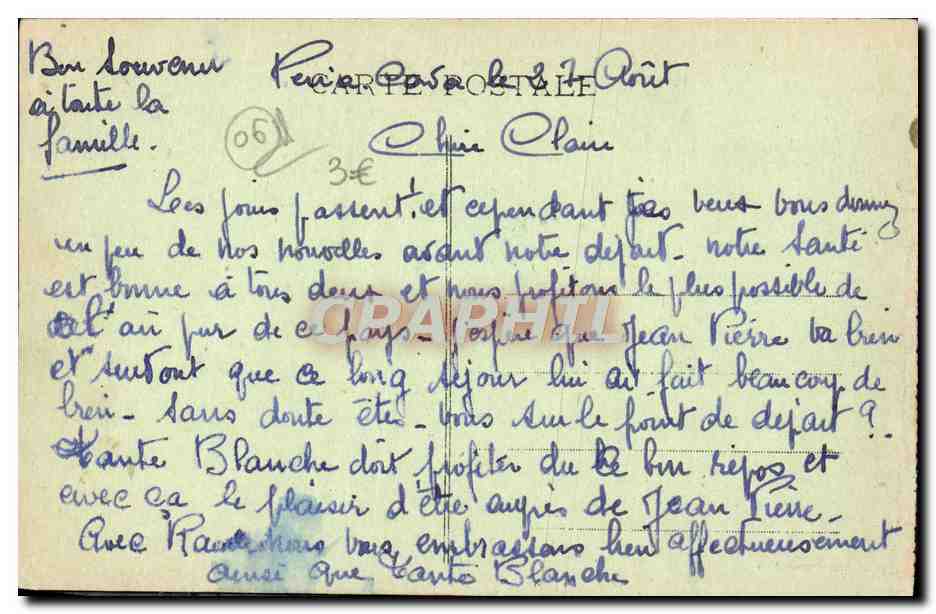 Bon Souvenir
à toute la
famille.
Peïra Cava le 27 Août
CARTE POSTALE
06
3€
Cher Clair
Les jours passent! et cependant je veux vous donner
un peu de nos nouvelles avant notre départ. notre santé
est bonne à tous deux et nous profitons le plus possible de
l'air pur de ce pays. J'espère que Jean Pierre va bien
et surtout que ce long séjour lui ait fait beaucoup de
bien. Sans doute êtes-vous sur le point de départ?
Tante Blanche doit profiter du bon repos et
avec ça le plaisir d'être auprès de Jean Pierre.
Avec nous vous embrassons bien affectueusement
ainsi que Tante Blanche
CPAPHIL